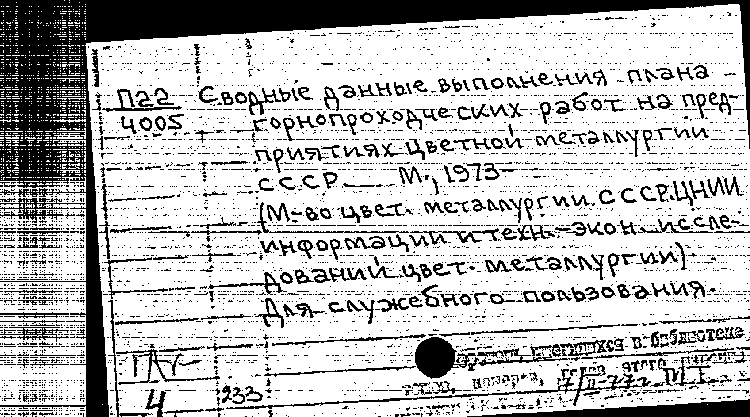 П22 Сводные данные выполнения плана
4005 горнопроходческих работ на пред-
приятиях цветной металлургии
СССР. М., 1973-
(М-во цвет. металлургии СССР.ЦНИИ
информации и техн.-экон. иссле-
дований цвет. металлургии)
Для служебного пользования.
имеющихся в библиотеке
этого
233
4